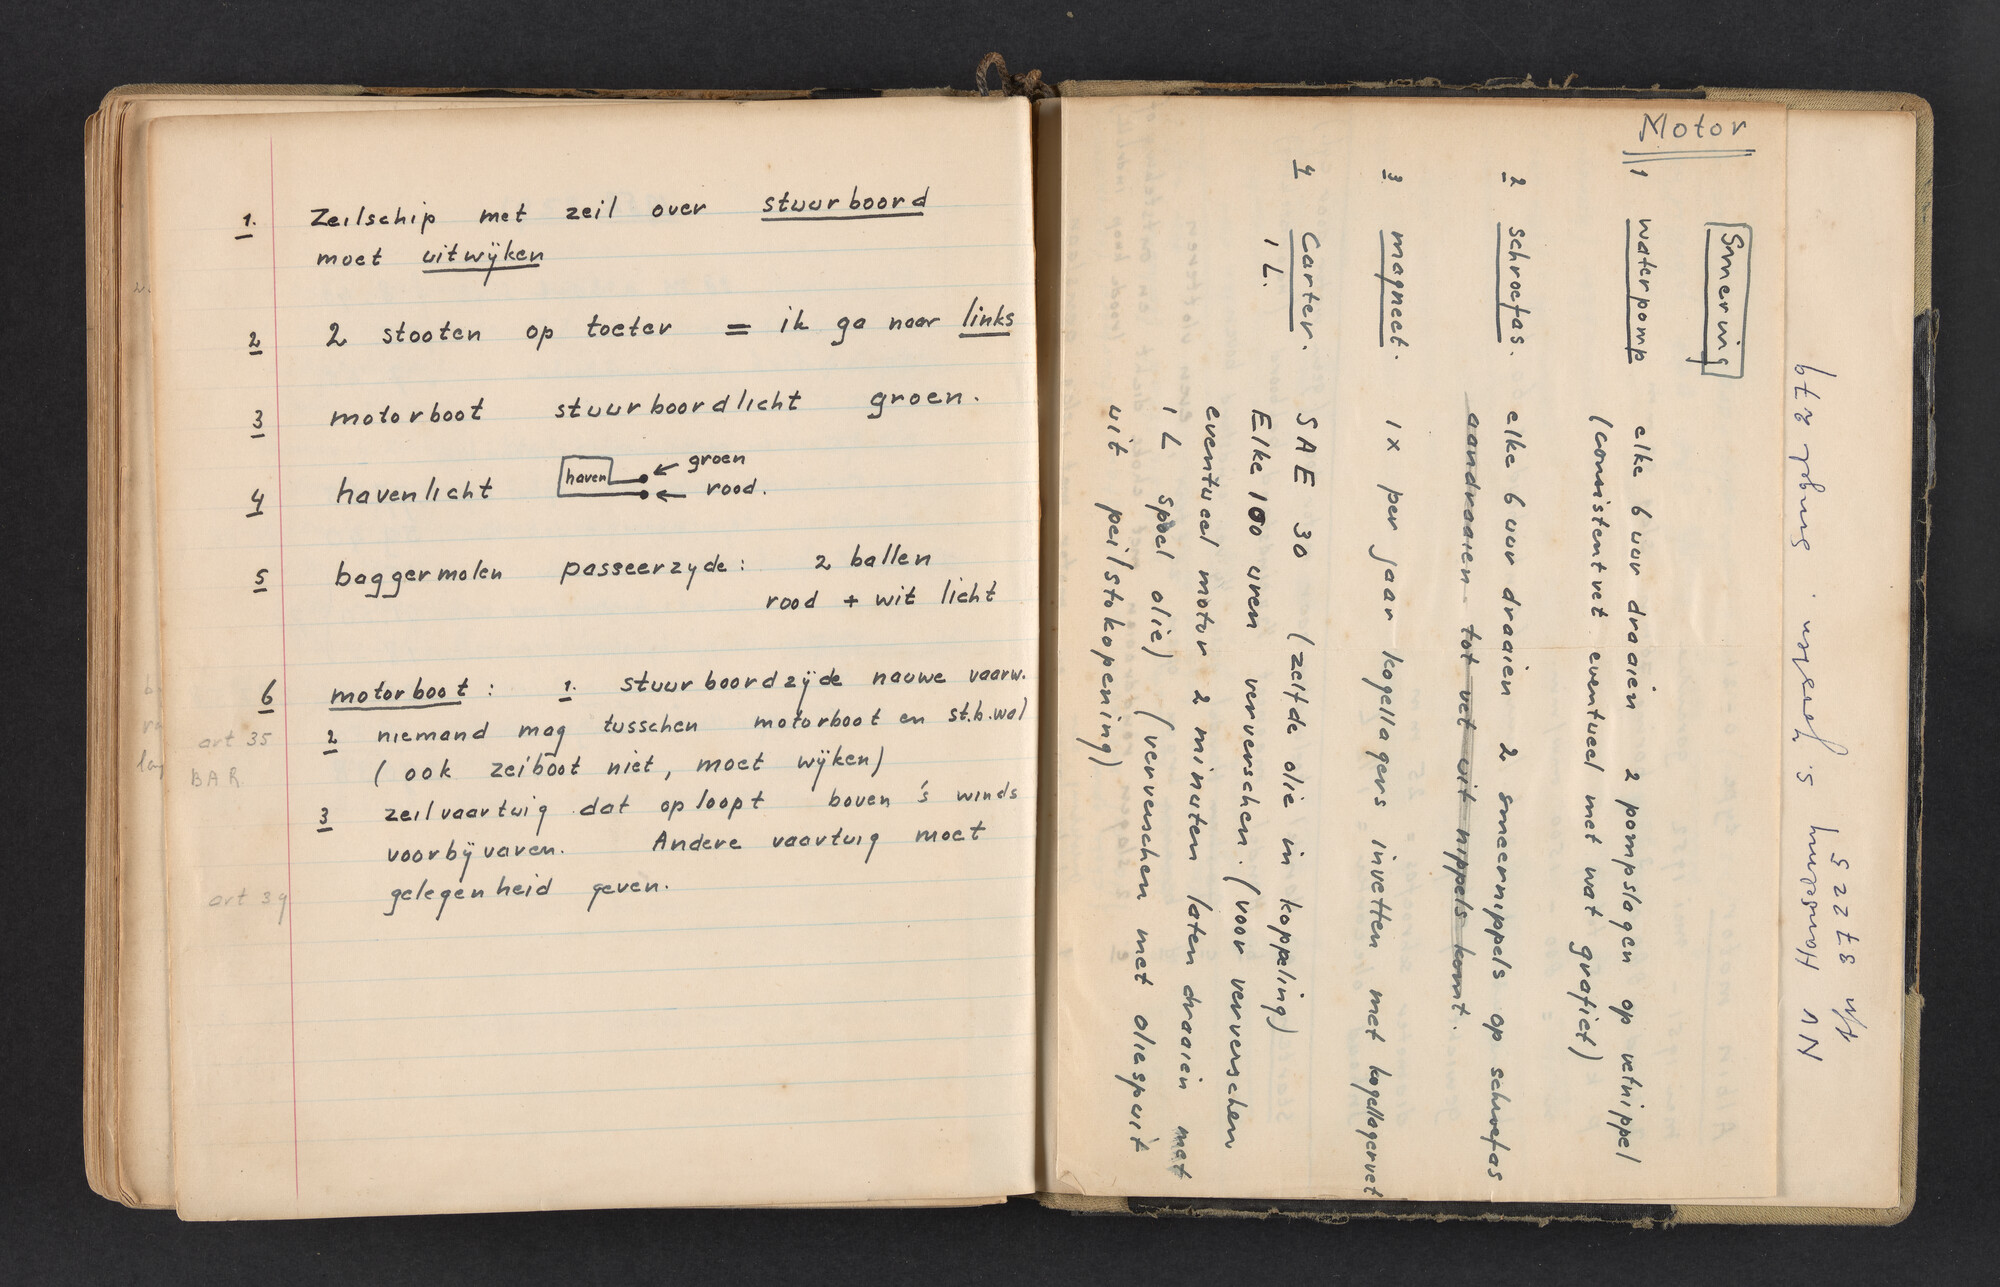 1. Zeilschip met zeil over stuurboord
moet uitwijken
2 2 stooten op toeter = ik ga naar links
3 motorboot stuurboordlicht groen.
4 havenlicht haven ← groen
← rood.
5 baggermolen passeerzyde: 2 ballen
rood + wit licht
6 motorboot: 1. stuurboordzijde nauwe vaarw.
art 35
2 niemand mag tusschen motorboot en st.b. wal
BAR
( ook zeilboot niet, moet wijken)
3 zeilvaartuig dat oploopt boven 's winds
voorbij varen. Andere vaartuig moet
art 39
gelegenheid geven.
Motor
Smering
1 waterpomp elke 6 uur draaien 2 pompslagen op vetnippel
(consistentvet eventueel met wat grafiet)
2 schroefas. elke 6 uur draaien 2 smeernippels op schroefas
aandraaien tot vet uit nippels komt.
3 magneet. 1x per jaar kogellagers invetten met kogellagervet
4 Carter. SAE 30 (zelfde olie in koppeling)
1 L. Elke 100 uren ververschen. (voor ververschen
eventueel motor 2 minuten laten draaien met
1 L spoel olie) (ververschen met oliespuit
uit peilstokopening)